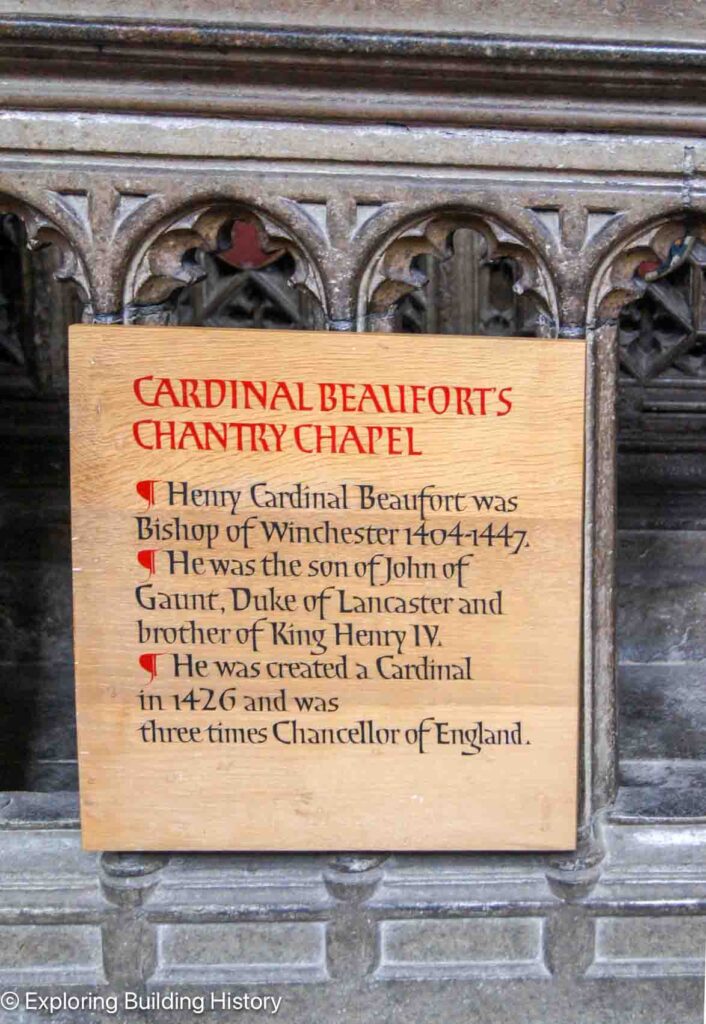 CARDINAL BEAUFORT'S
CHANTRY CHAPEL
¶ Henry Cardinal Beaufort was
Bishop of Winchester 1404-1447.
¶ He was the son of John of
Gaunt, Duke of Lancaster and
brother of King Henry IV.
¶ He was created a Cardinal
in 1426 and was
three times Chancellor of England.
© Exploring Building History